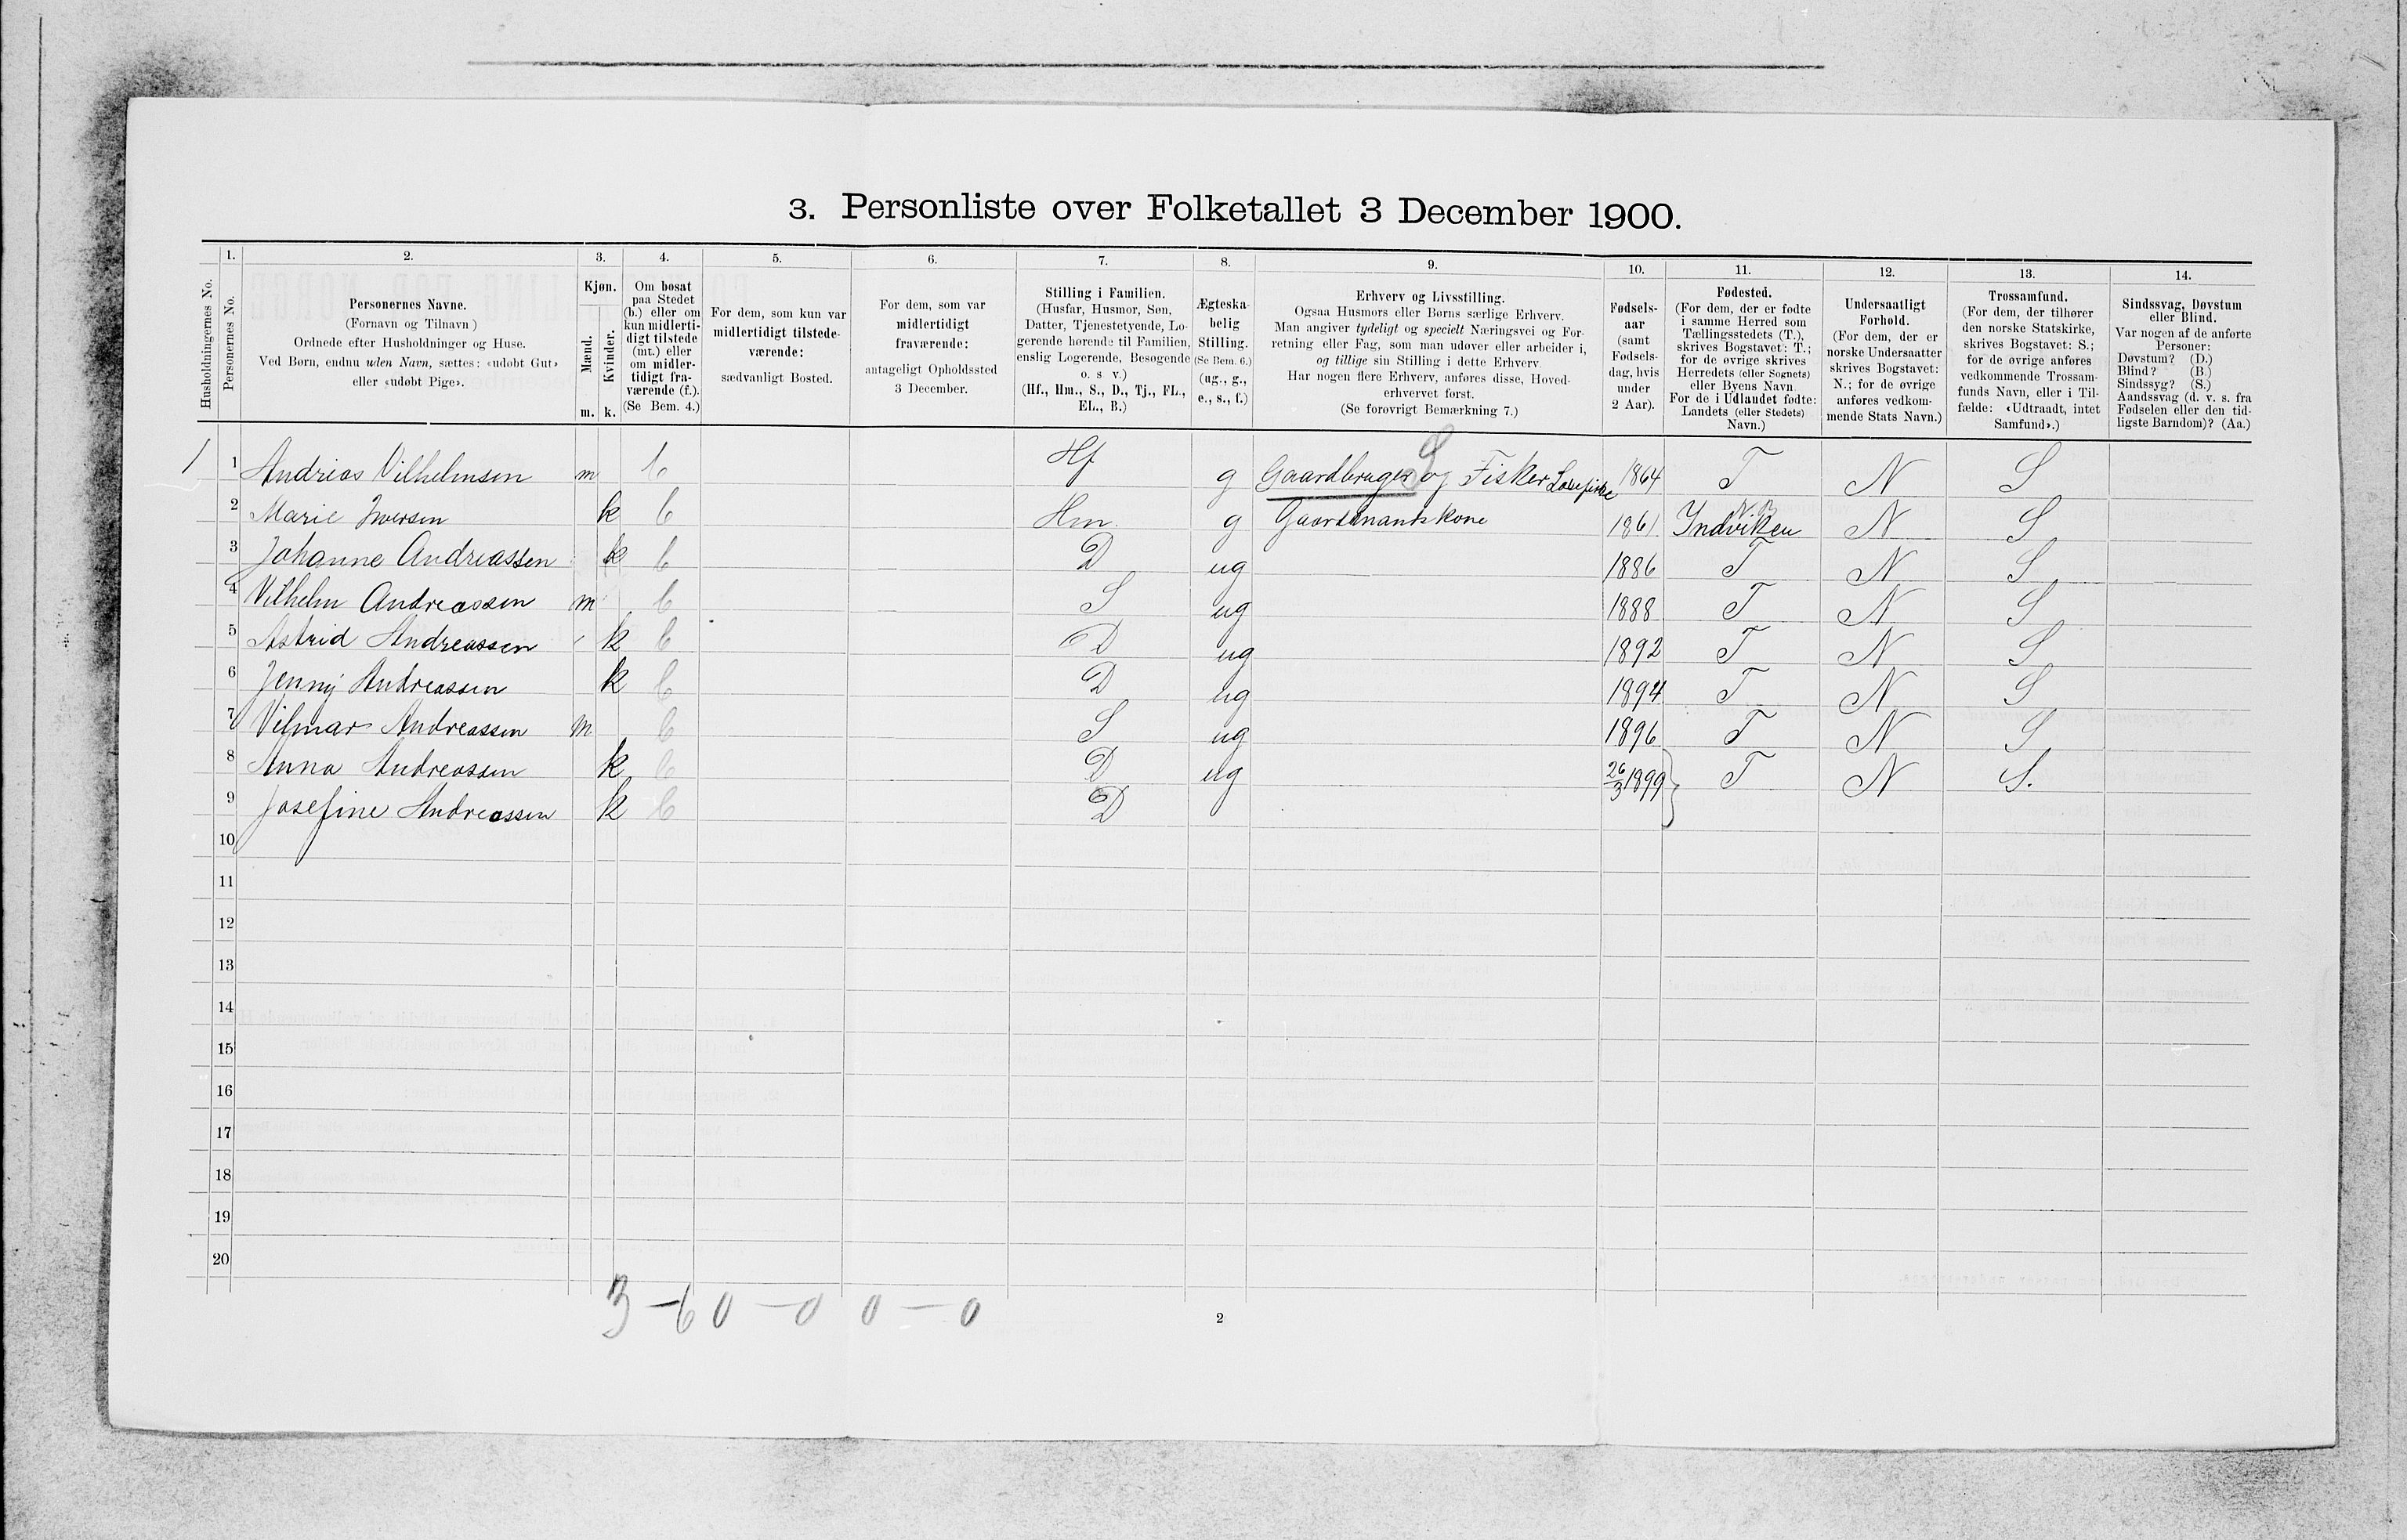 3. Personliste over Folketallet 3 December 1900.
1. 2. 3. 4. 5. 6. 7. 8. 9. 10. 11. 12. 13. 14.
Husholdningernes No.
Personernes No.
Personernes Navne.
(Fornavn og Tilnavn)
Ordnede efter Husholdninger og Huse.
Ved Børn, endnu uden Navn, sættes: «udøbt Gut»
eller «udøbt Pige».
Kjøn.
Mænd.
Kvinder.
m. k.
Om bosat
paa Stedet
(b.) eller om
kun midlerti-
digt tilstede
(mt.) eller
om midler-
tidigt fra-
værende (f.).
(Se Bem. 4.)
For dem, som kun var
midlertidigt tilstede-
værende:
sædvanligt Bosted.
For dem, som var
midlertidigt
fraværende:
antageligt Opholdssted
3 December.
Stilling i Familien.
(Husfar, Husmor, Søn,
Datter, Tjenestetyende, Lo-
gerende hørende til Familien,
enslig Logerende, Besøgende
o. s v.)
(Hf., Hm., S., D., Tj., FL.,
EL., B.)
Ægteska-
belig
Stilling.
(Se Bem. 6.)
(ug., g.,
e., s., f.)
Erhverv og Livsstilling.
Ogsaa Husmors eller Børns særlige Erhverv.
Man angiver tydeligt og specielt Næringsvei og For-
retning eller Fag, som man udøver eller arbeider i,
og tillige sin Stilling i dette Erhverv.
Har nogen flere Erhverv, anføres disse, Hoved-
erhvervet først.
(Se forøvrigt Bemærkning 7.)
Fødsels-
aar
(samt
Fødsels-
dag, hvis
under
2 Aar).
Fødested.
(For dem, der er fødte
i samme Herred som
Tællingsstedets (T.),
skrives Bogstavet: T.;
for de øvrige skrives
Herredets (eller Sognets)
eller Byens Navn.
For de i Udlandet fødte:
Landets (eller Stedets)
Navn.)
Undersaatligt
Forhold.
(For dem, der er
norske Undersaatter
skrives Bogstavet:
N.; for de øvrige
anføres vedkom-
mende Stats Navn.)
Trossamfund.
(For dem, der tilhører
den norske Statskirke,
skrives Bogstavet: S.;
for de øvrige anføres
vedkommende Trossam-
funds Navn, eller i Til-
fælde: «Udtraadt, intet
Samfund».)
Sindssvag, Døvstum
eller Blind.
Var nogen af de anførte
Personer:
Døvstum? (D.)
Blind? (B.)
Sindssyg? (S.)
Aandssvag (d. v. s. fra
Fødselen eller den tid-
ligste Barndom)? (Aa.)
1 1 Andrias Vilhelmsen m b Hf g Gaardbruger og Fisker Losefiske 1864 T N S
2 Marie Iversen k b Hm. g Gaardmandskone 1861 Indviken N S
3 Johanne Andreassen k b D ug 1886 T N S
4 Vilhelm Andreassen m b S ug 1888 T N S
5 Astrid Andreassen k b D ug 1892 T N S
6 Jenny Andreassen k b D ug 1894 T N S
7 Vilmar Andreassen m b S ug 1896 T N S
8 Anna Andreassen k b D ug 26/3 1899 T N S.
9 Josefine Andreassen k b D
10
11
12
13
14
15
16
17
18
19
20
3 – 6 0 – 0 0 – 0
2